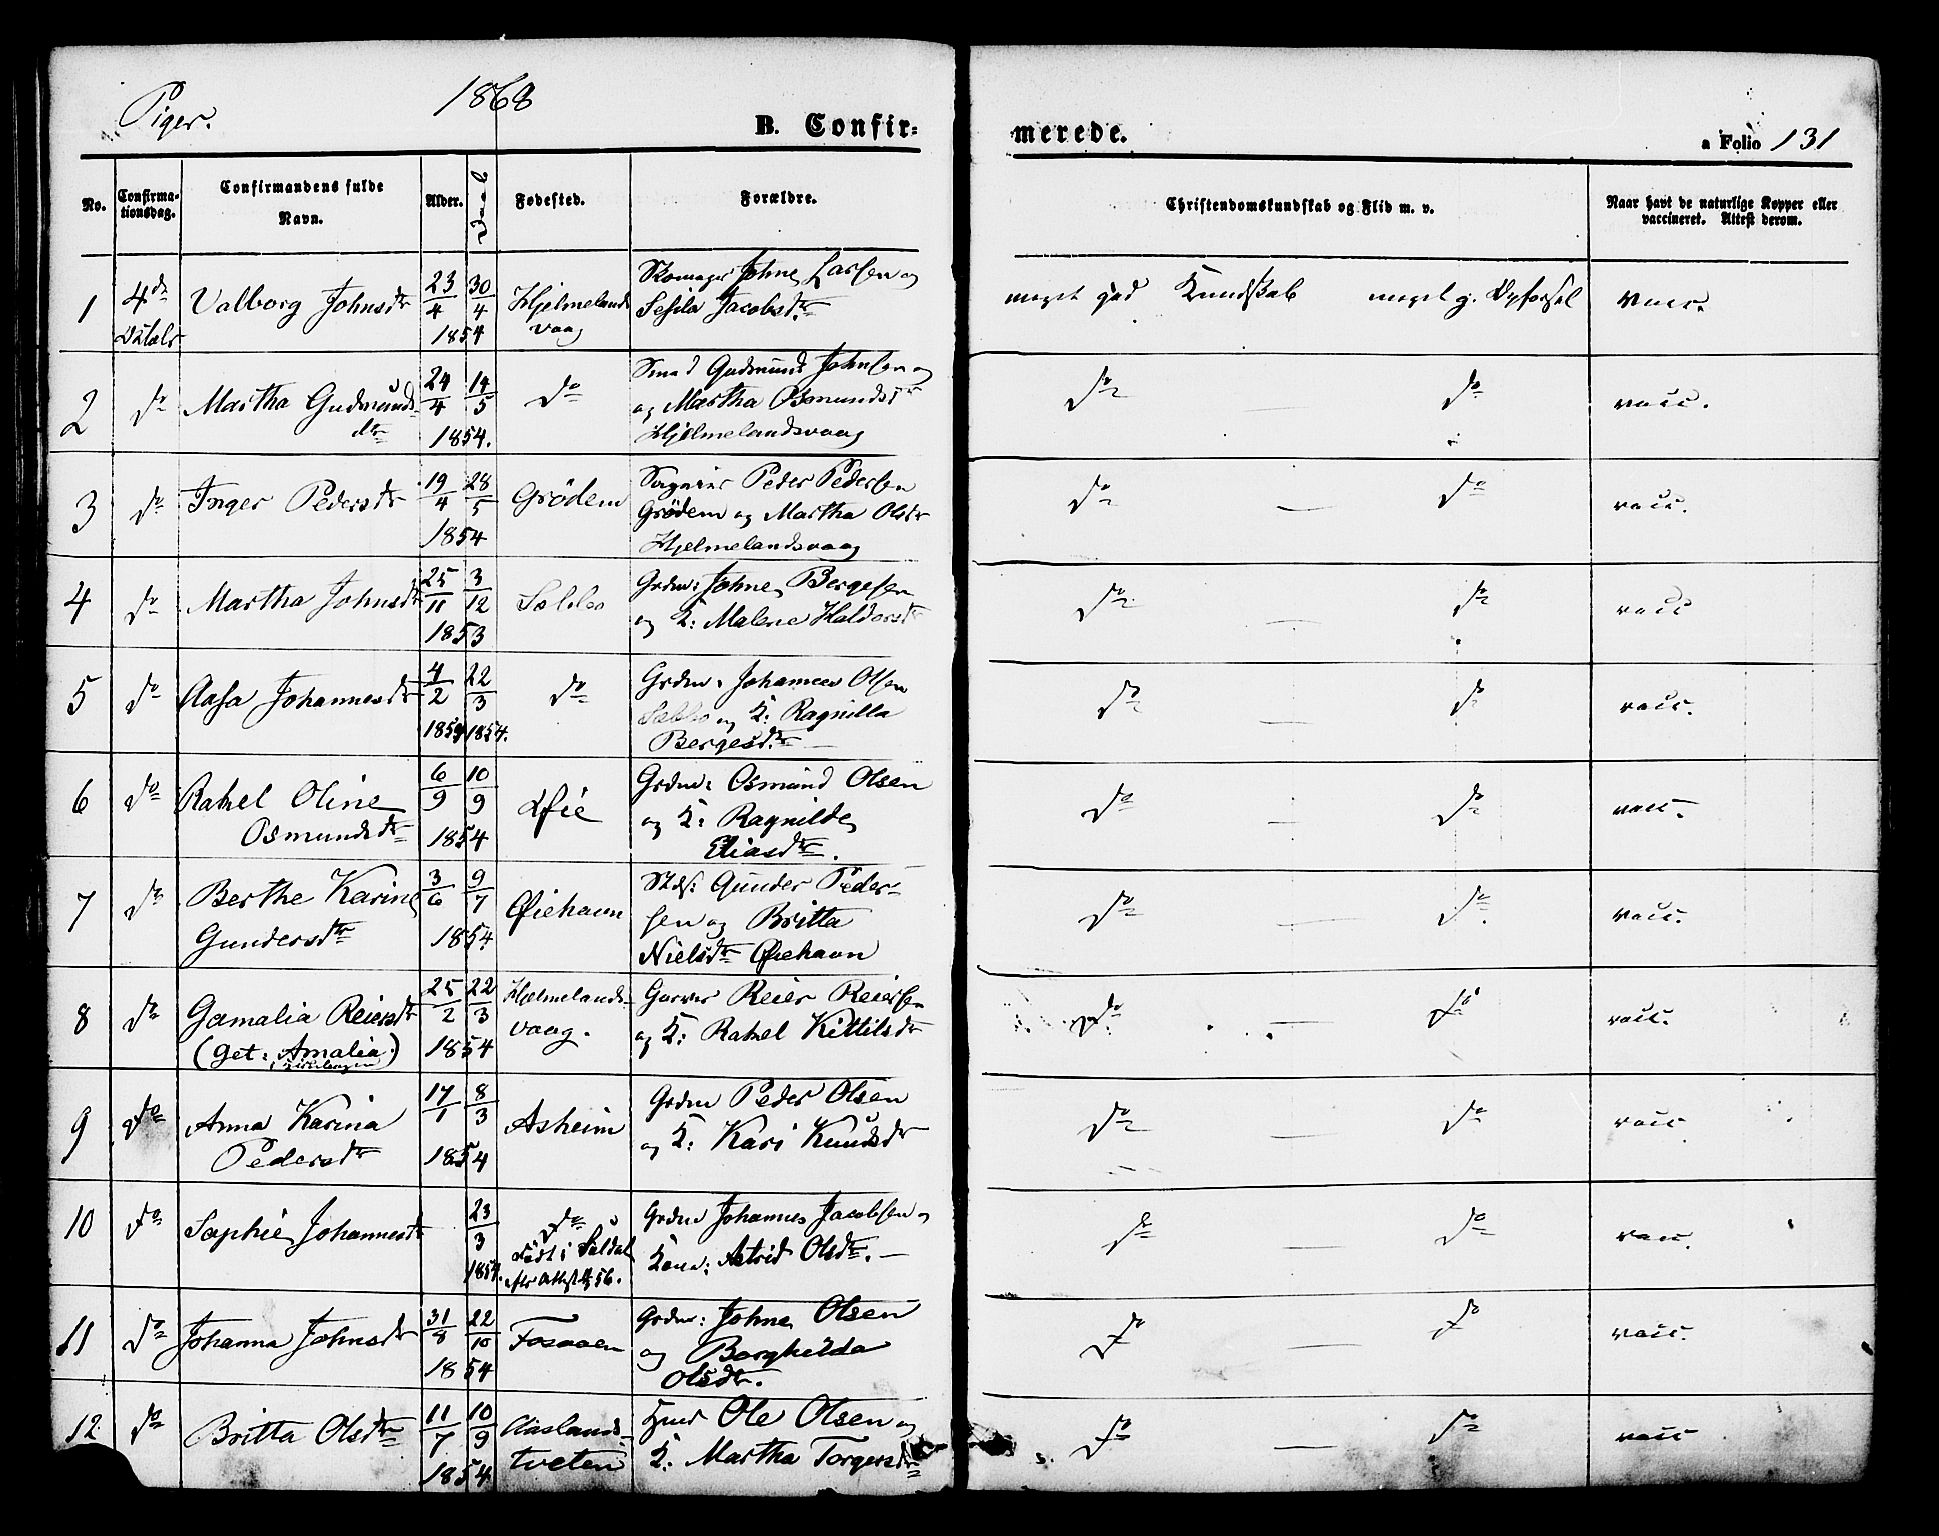 Piger. 1868
B. Confir- merede. a Folio 131
No. Confirma-tionsdag. Confirmandens fulde Navn. Alder. Daab Fødested. Forældre. Christendomskundskab og Flid m. v. Naar havt de naturlige Kopper eller vaccineret. Attest derom.
1 4de Octobr Valborg Johnsdtr 23/4 30/4 1854 Hjelmelands vaag Skomager Johne Larsen og
Sesila Jacobsdtr meget god Kundskab meget g. Opførsel vacc.
2 do Martha Gudmunds dtr 24/4 14/5 1854. do Smed Gudmund Johnsen og
og Martha Osmundsdtr
Hjelmelandsvaag do — do vacc.
3 do Inger Pedersdtr 19/4 28/5 1854 Grödem Peder Pedersen
Grödem og Martha Olsdtr
Hjelmelandsvaag do — do vacc.
4 do Martha Johnsdtr 25/11 3/12 1853 Grdm: Johne Bergesen
og K: Malene Haldorsdtr do — do vacc
5 do Aasa Johannesdtr 4/2 22/3 1854 1854. do Grdm: Johannes Olsen
og K: Ragnilla
Bergesdtr — do — do vacc.
6 do Rakel Oline
Osmundsdtr 6/9 10/9 1854 Øie Grdm: Osmund Olsen
og K: Ragnilde
Eliasdtr. do — do vacc.
7 do Berthe Karine
Gundersdtr 3/6 9/7 1854. Øiehavn Gunder Peder-
sen og Britta
Nielsdtr Øiehavn do — do. vacc.
8 do Gamalia Reiersdtr
(get: Amalia) 25/2 22/3 1854 Hjelmelands-
vaag. Garver Reier Reiersen
og K: Rakel Kittilsdtr do — do vacc.
9 do Anna Karina
Pedersdtr 17/1 8/3 1854 Asheim Grdm Peder Olsen
og K: Kari Knudsdtr do — do vacc
10 do Sophie Johannesdtr 23/3 1854. do
Födt i Suldal Grdm Johannes Jacobsen og
Kone: Astrid Olsdtr. — do — do vacc.
11 do Johanna Johnsdtr 31/8 22/10 1854 Fosaaen Grdm: Johne Olsen
og Borghilda
Olsdtr. do — do vacc.
12 do Britta Olsdtr 11/7 10/9 1854 Aaslands-
tveten Ole Olsen og
K: Martha Torgersdtr do — do vacc